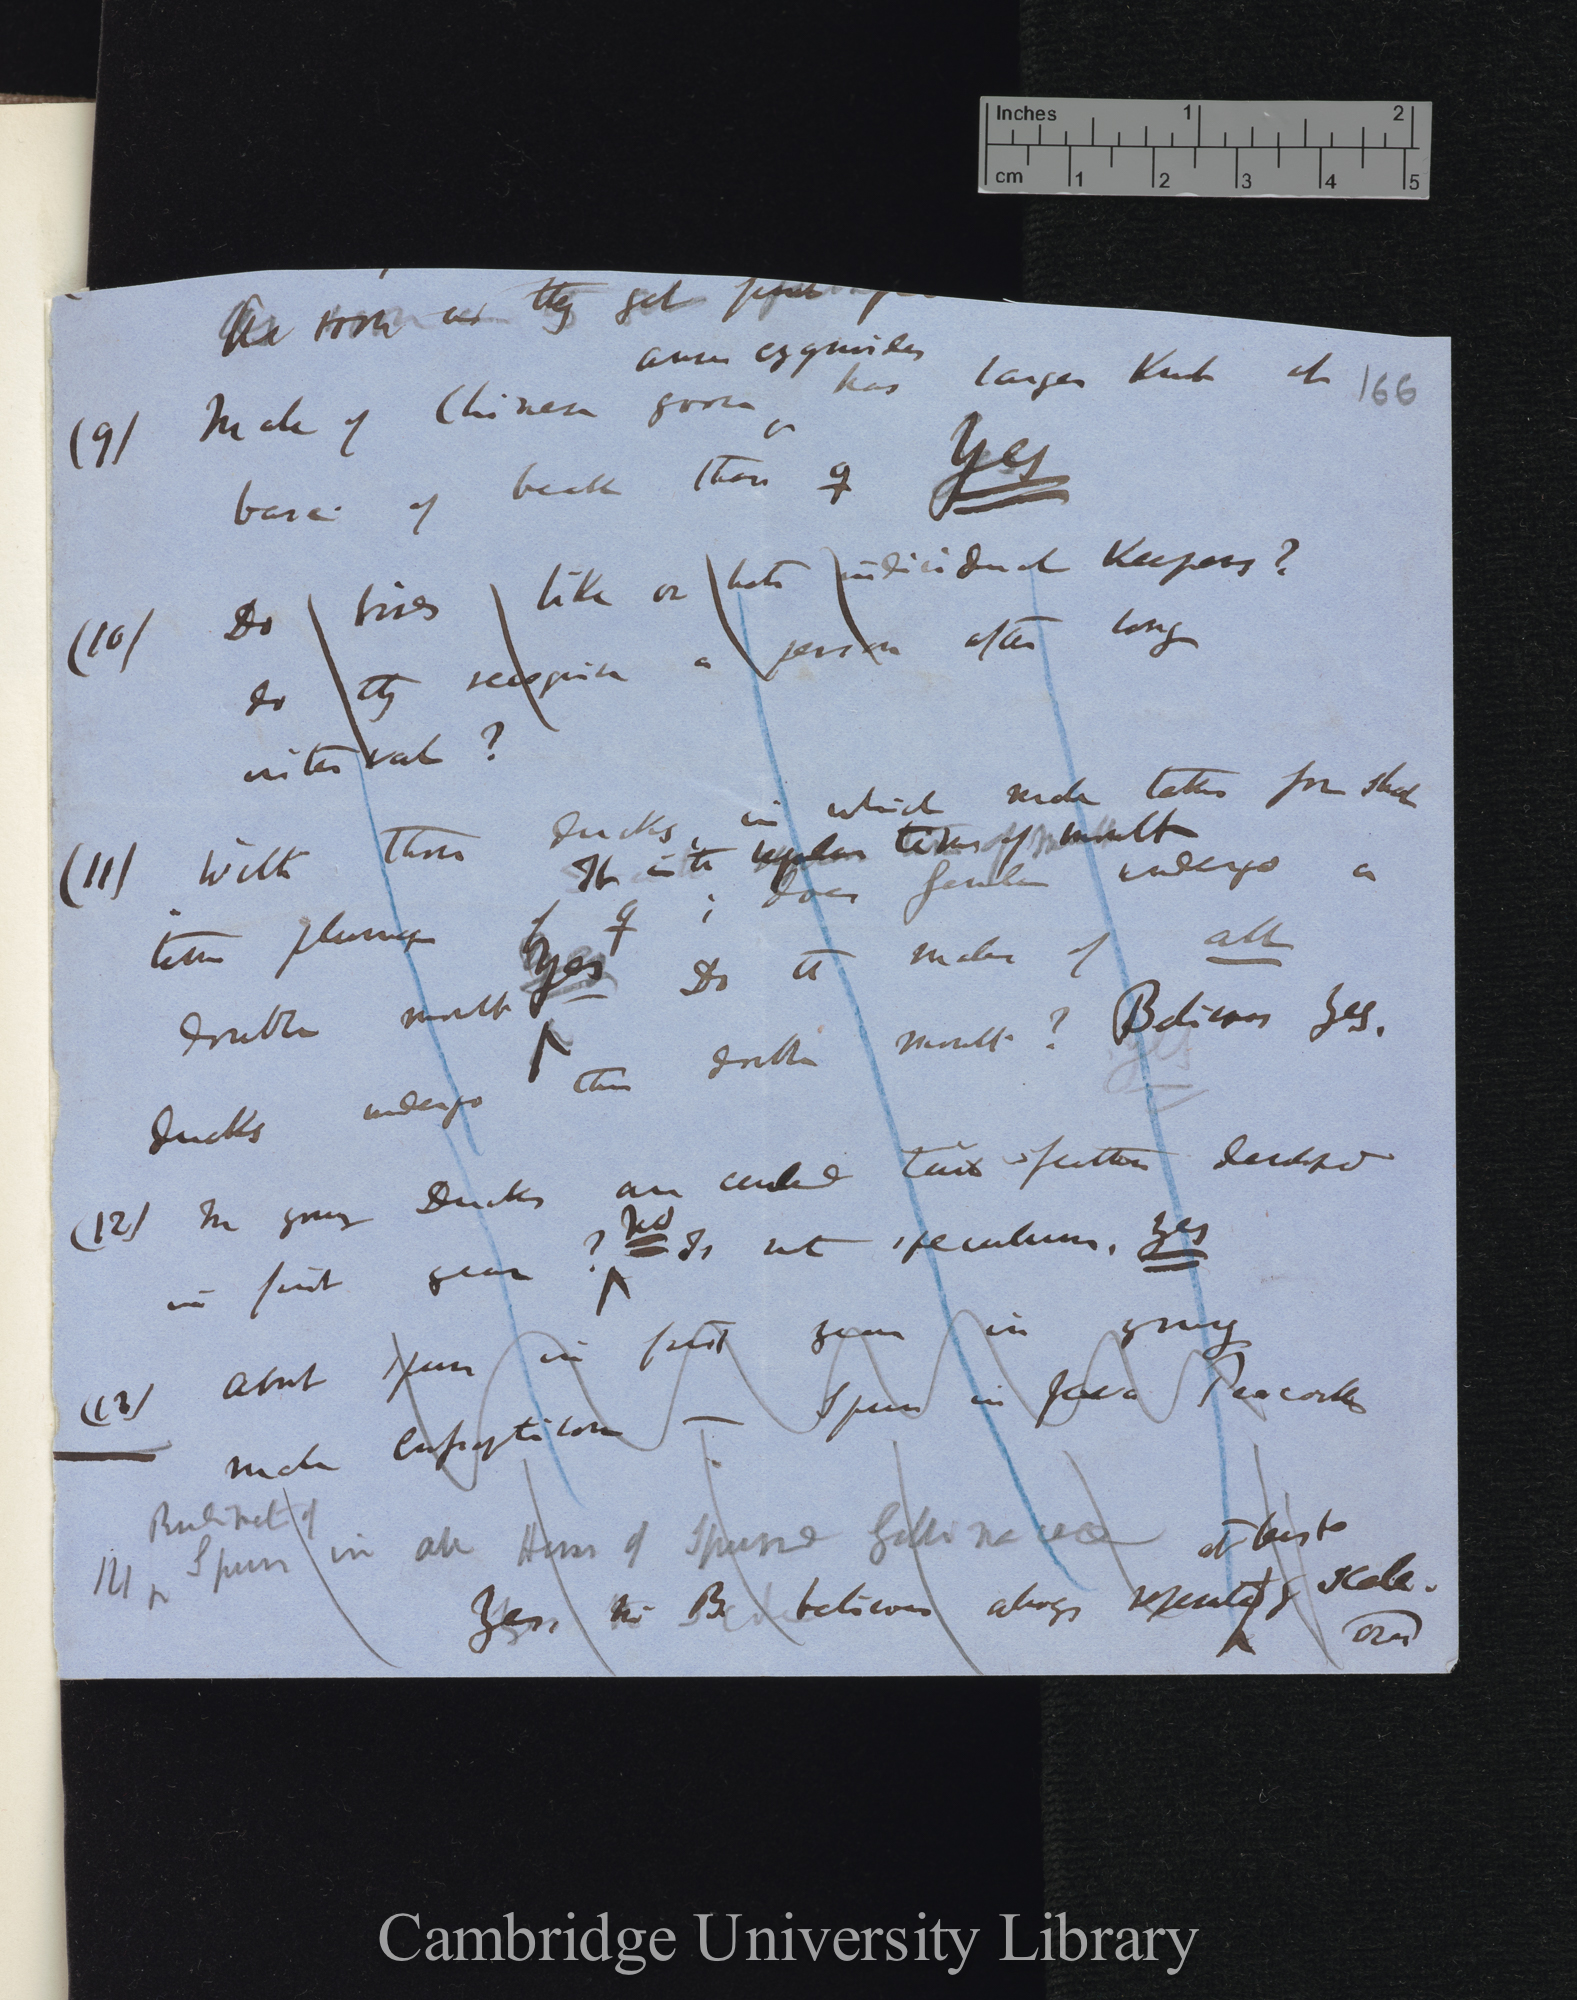 Inches 1 2
cm 1 2 3 4 5
as soon as they get
166
anser cygnoides
(9) Male of Chinese goose, has larger knob at
base of beak than ♀ Yes
(10) Do birds like or hate individual Keepers?
do they recognise a person after long
interval?
(11) With those ducks, in which male takes for short
It is the regular time of moult
time plumage of ♀; does female undergo a
double moult Yes — Do the males of all
ducks undergo this double moult? Believes Yes.
yes
(12) In young Ducks are curled tail-feathers developed
in first year? No Is not speculum. Yes
(13) About spurs in first year in young
male Euplocomi — Spurs in Java Peacocks
Rudiment of
14 Spurs in all Hens of Spurred Gallinaceae
at least
Yes, Mr B. believes always represented by scale.
over
Cambridge University Library